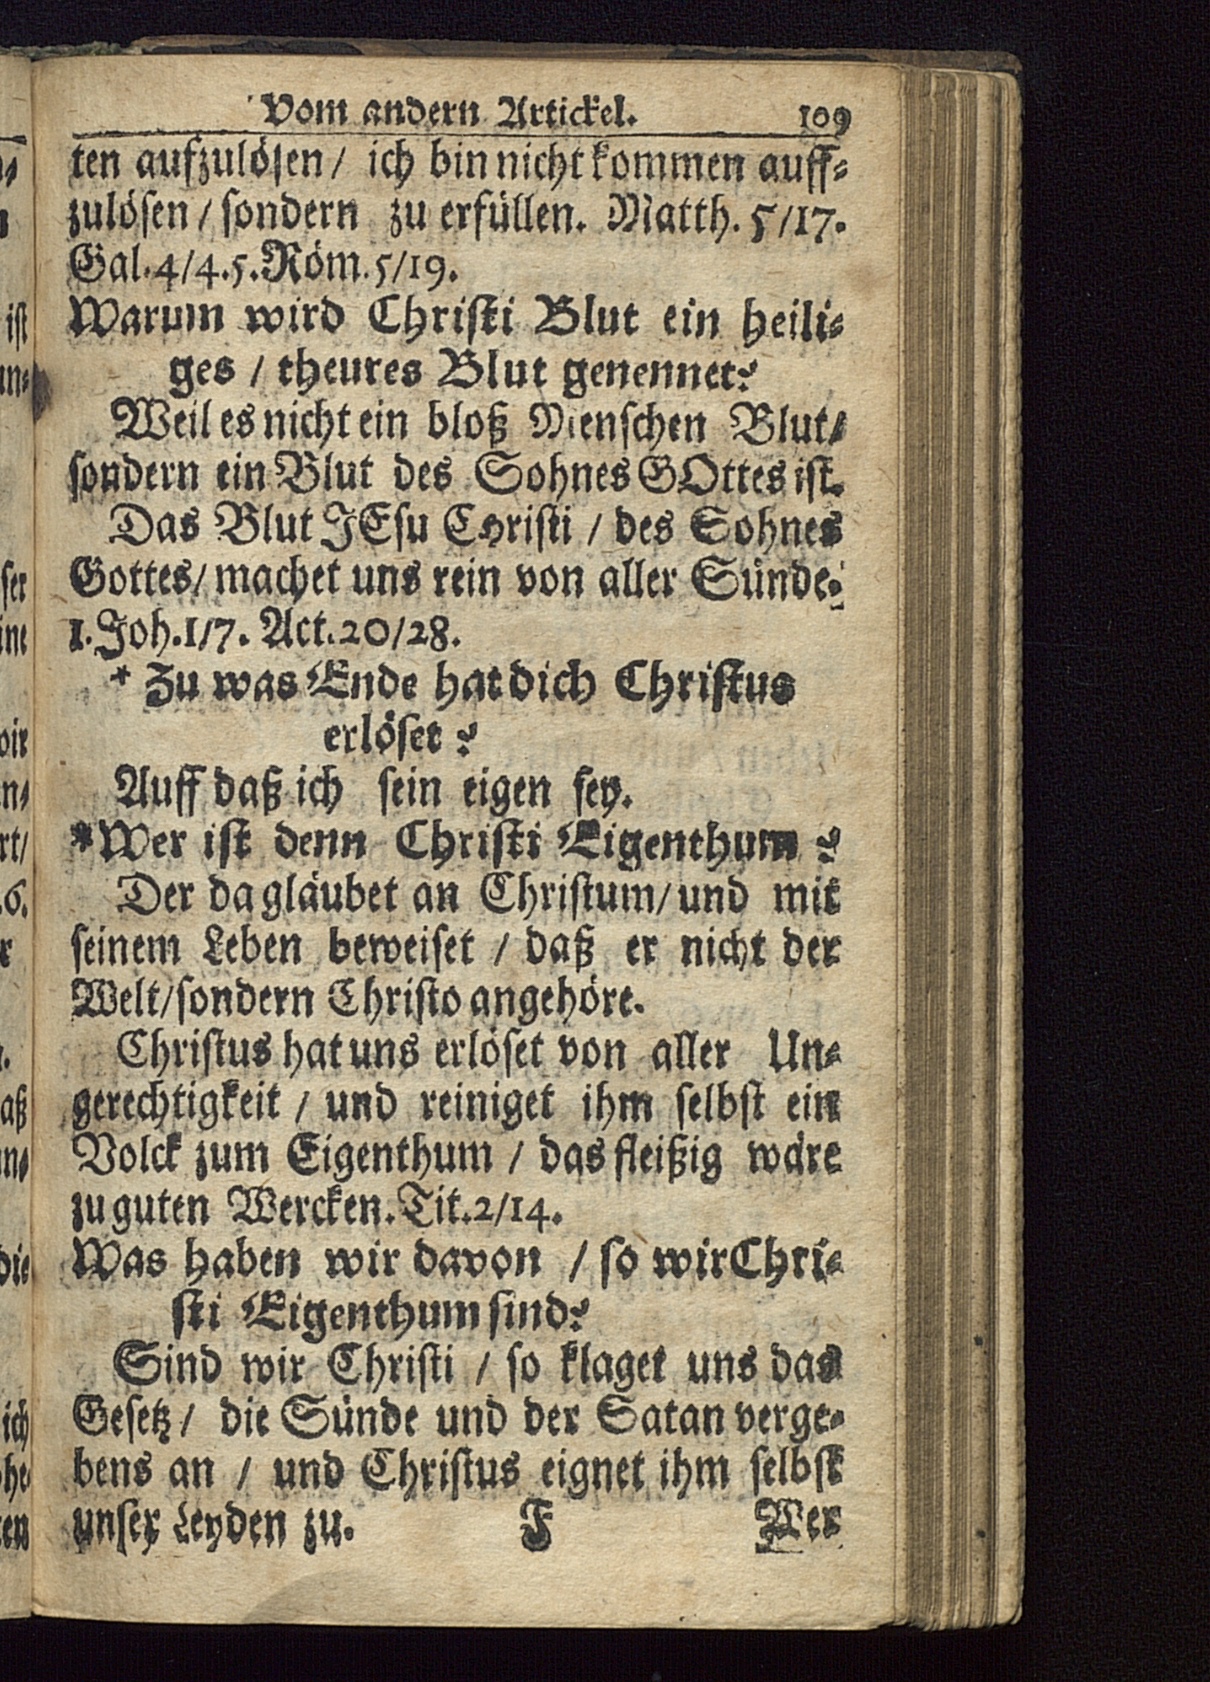 Vom andern Artickel. 109
ten aufzulösen / ich bin nicht kommen auff-
zulösen / sondern zu erfüllen. Matth. 5/17.
Gal. 4/4.5. Röm. 5/19.
Warum wird Christi Blut ein heili-
ges / theures Blut genennet?
Weil es nicht ein bloß Menschen Blut /
sondern ein Blut des Sohnes GOttes ist.
Das Blut JEsu Christi / des Sohnes
Gottes / machet uns rein von aller Sünde.
1. Joh. 1/7. Act. 20/28.
* Zu was Ende hat dich Christus
erlöset?
Auff daß ich sein eigen sey.
* Wer ist denn Christi Eigenthum?
Der da gläubet an Christum / und mit
seinem Leben beweiset / daß er nicht der
Welt / sondern Christo angehöre.
Christus hat uns erlöset von aller Un-
gerechtigkeit / und reiniget ihm selbst ein
Volck zum Eigenthum / das fleißig wäre
zu guten Wercken. Tit. 2/14.
Was haben wir davon / so wir Chri-
sti Eigenthum sind?
Sind wir Christi / so klaget uns das
Gesetz / die Sünde und der Satan verge-
bens an / und Christus eignet ihm selbst
unser Leyden zu. F Wer